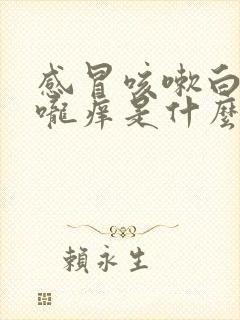 感冒咳嗽白
嚨痒是什麼
賴永生